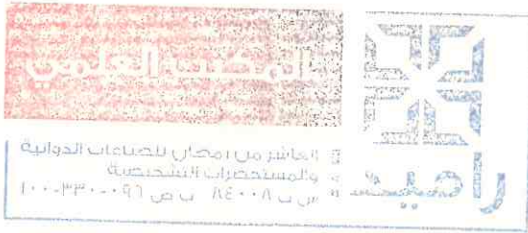 المكتب العلمي
العاشر من رمضان للصناعات الدوائية
والمستحضرات التشخيصية
س ت ٨٤٠٠٨ ب ض ٠٩٦-٣٣٠-١٠٠
راميدا